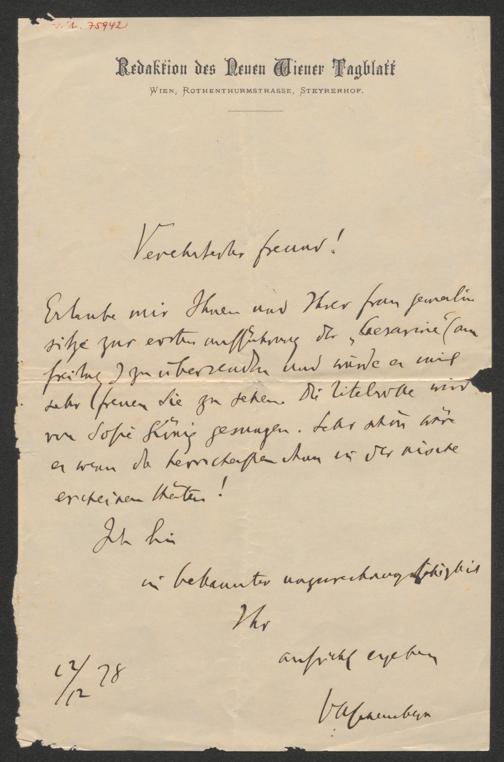 75942
Redaktion des Neuen Wiener Tagblatt
WIEN, ROTHENTHURMSTRASSE, STEYRERHOF.
Verehrtester freund!
Erlaube mir Ihnen und Ihrer frau gemalin
sitze zur ersten aufführung der „Caesarine" (am
freitag) zu übersenden und würde es mich
sehr freuen Sie zu sehen. Die titelrolle wird
von Sofie König gesungen. Sehr schön wäre
es wenn die herrschaften schon in der
erscheinen thäten!
Ich bin
in bekannter
Ihr
aufricht ergeben
12/12 78